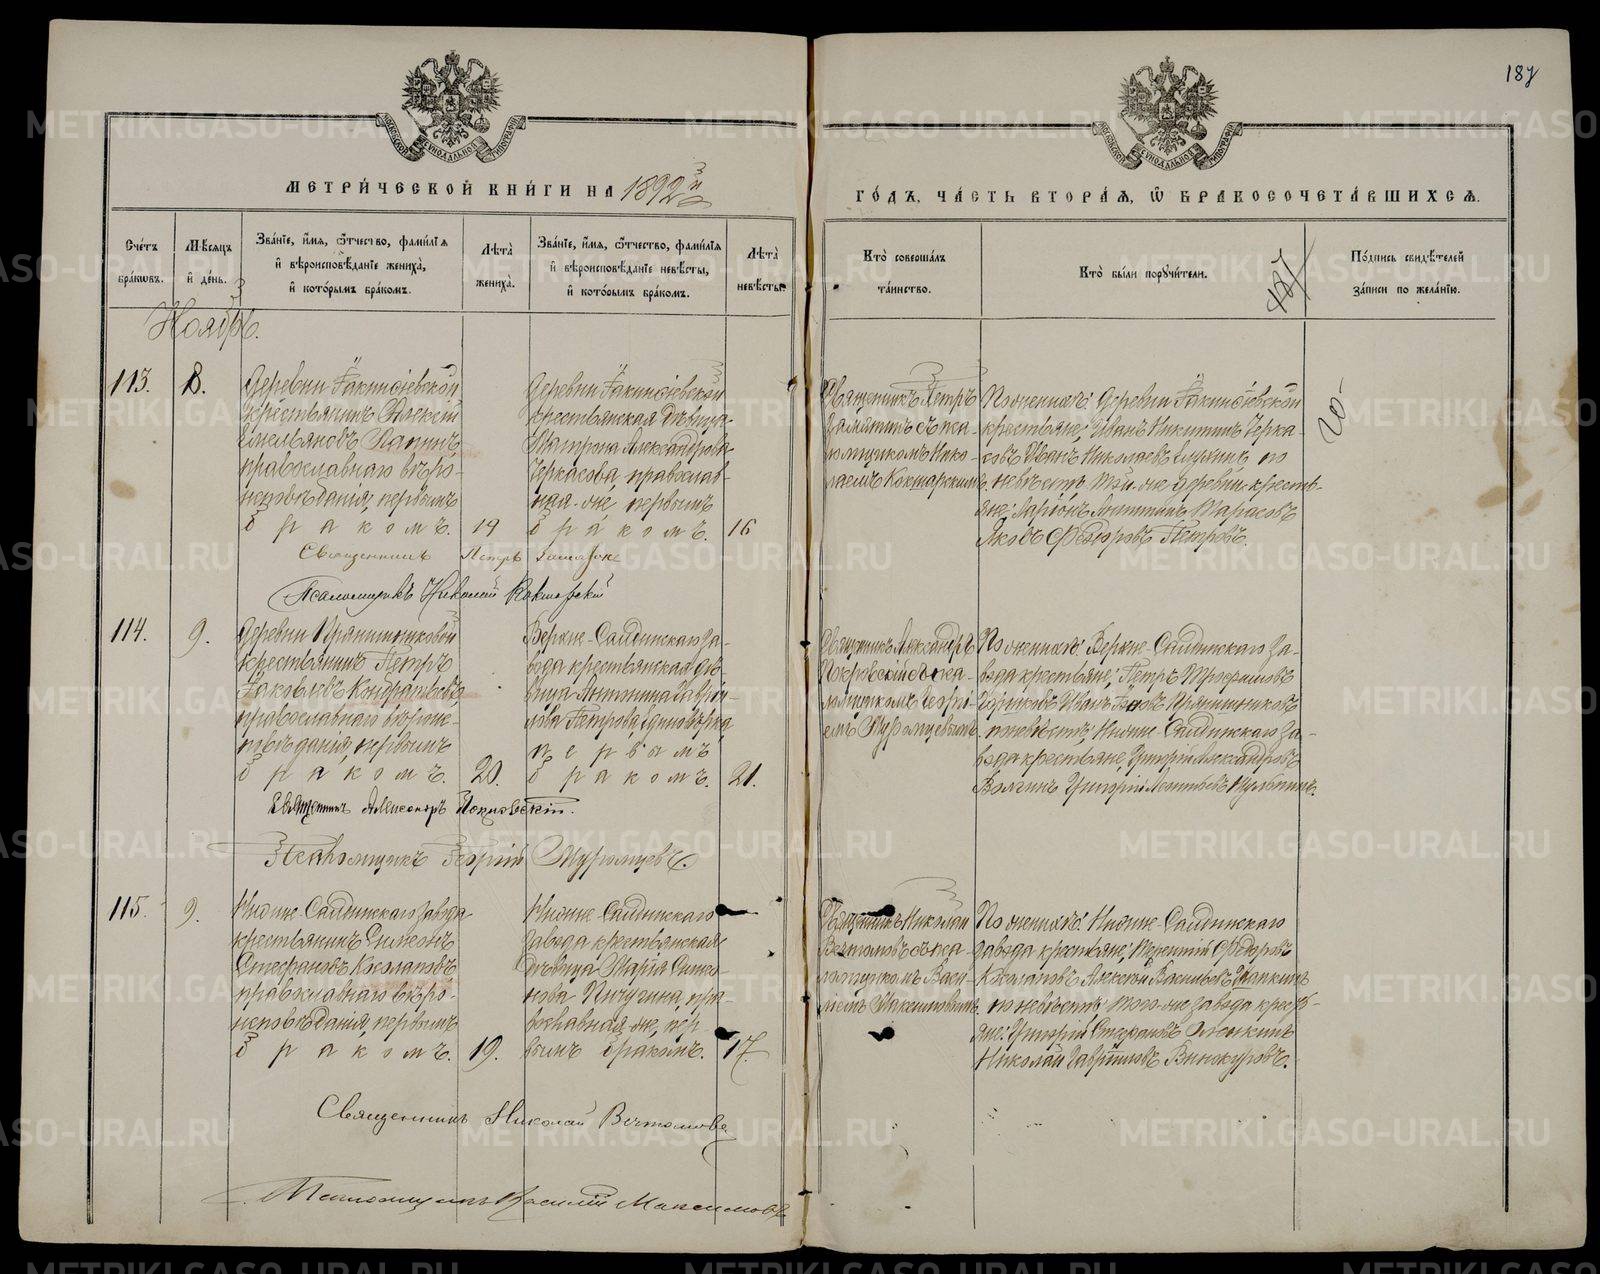 187
МОСКОВСКОЙ СѴНОДАЛЬНОЙ ТИПОГРАФІИ
МОСКОВСКОЙ СѴНОДАЛЬНОЙ ТИПОГРАФІИ
МЕТРИ́ЧЕСКОЙ КНИ́ГИ НА 1892й
ГО́ДЪ, ЧА́СТЬ ВТОРА́Я, Ѽ БРАКОСОЧЕТА́ВШИХСЯ.
Сче́тъ бра́ковъ.
Мѣ́сяцъ и҆ де́нь.
Зва́нїе, и҆́мя, ѻ҆́тчество, фами́лїя и҆ вѣроисповѣ́данїе жениха̀, и҆ кото́рымъ бра́комъ.
Лѣ́та̀ жениха̀.
Зва́нїе, и҆́мя, ѻ҆́тчество, фами́лїя и҆ вѣроисповѣ́данїе невѣ́сты, и҆ кото́рымъ бра́комъ.
Лѣ́та̀ невѣ́сты.
Кто̀ соверша́лъ та́инство.
Кто̀ бы́ли порꙋчи́тели.
По́дпись свидѣ́телей за́писи по жела́нїю.
Ноябрь.
113.
8.
Деревни Іакинѳіевской
крестьянинъ Алексій
Емельяновъ Лапинъ
православнаго вѣро-
исповѣданія, первымъ
бракомъ.
19
Деревни Іакинѳіевской
крестьянская дѣвица
Матрона Александрова
Черкасова, православ-
ная-же, первымъ
бракомъ.
16
Священникъ Петръ
Замятинъ съ пса-
ломщикомъ Нико-
лаемъ Кокшарскимъ
По женихѣ: деревни Іакинѳіевской
крестьяне; Иванъ Никитинъ Черка-
совъ Иванъ Николаевъ по
невѣстѣ той-же деревни кресть-
яне: Ларіонъ Никитинъ Тарасовъ
Яковъ Ѳедоровъ Петровъ.
Священникъ Петръ
Псаломщикъ Николай Кокшарскій
114.
9.
Деревни Прянишниковой
крестьянинъ Петръ
Іаковлевъ Кондратьевъ,
православнаго вѣроис-
повѣданія, первымъ
бракомъ.
20.
Верхне-Салдинскаго за-
вода крестьянская дѣ-
вица Антонина Гаврі-
лова Петрова, единовѣрка
первымъ
бракомъ.
21.
Священникъ Александръ
Покровскій съ пса-
ломщикомъ Георгі-
емъ Муромцевымъ
По женихѣ: Верхне-Салдинскаго за-
вода крестьяне; Петръ Трофимовъ
Иванъ Прянишниковъ
по невѣстѣ, Нижне-Салдинскаго за-
вода крестьяне, Григорій Александровъ
Волгинъ Григорій
Священникъ Александръ Покровскій.
Псаломщикъ Георгій Муромцевъ.
115.
9.
Нижне-Салдинскаго завода
крестьянинъ Симеонъ
Стефановъ Козлаповъ
православнаго вѣро-
исповѣданія, первымъ
бракомъ.
19.
Нижне-Салдинскаго
завода крестьянская
дѣвица Марія Симео-
нова Пичугина, пра-
вославная-же, пер
вымъ бракомъ.
17.
Священникъ Николай
съ пса-
ломщикомъ Васи-
ліемъ Максимовымъ
По женихѣ: Нижне-Салдинскаго
завода крестьяне; Терентій Ѳедоровъ
Козлаповъ Алексѣй Васильевъ
по невѣстѣ: того-же завода кресть-
яне: Григорій Стефановъ
Николай Гавріиловъ Винокуровъ.
Священникъ Николай
Псаломщикъ Василій Максимовъ
METRIKI.GASO-URAL.RU